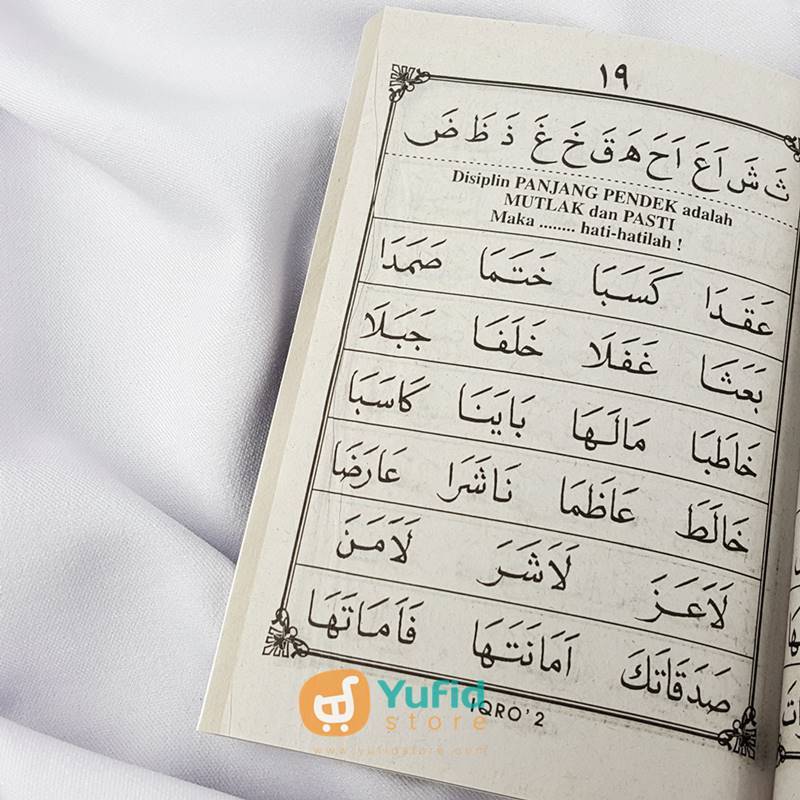 ١٩
ثَ شَ اَ عَ اَ حَ هَ قَ خَ غَ ذَ ظَ ضَ
Disiplin PANJANG PENDEK adalah
MUTLAK dan PASTI
Maka ........ hati-hatilah !
عَقَدَا كَسَبَا خَتَمَا صَمَدَا
بَعَثَا غَفَلَا خَلَفَا جَبَلَا
خَاطَبَا مَالَهَا بَايَنَا كَاسَبَا
خَالَطَ عَاظَمَا نَاشَرَا عَارَضَا
لَاَعَزَ لَاَشَرَ لَاَمَنَ
صَدَقَاتَكَ اَمَانَتَهَا فَاَمَاتَهَا
IQRO' 2
Yufid
store
www.yufidstore.com